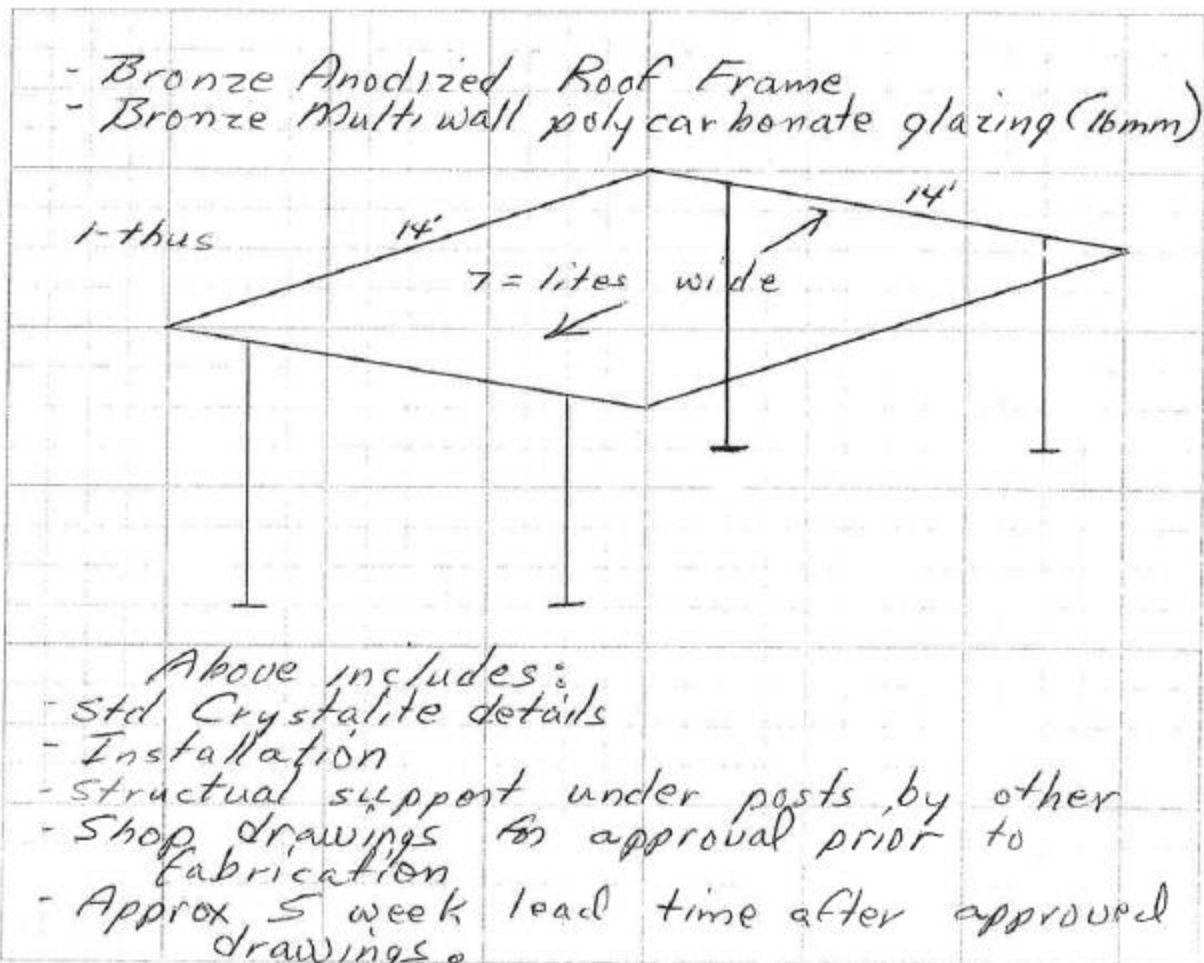 - Bronze Anodized Roof Frame
- Bronze Multiwall polycarbonate glazing (16mm)
1-thus
14'
14'
7 = lites wide
Above includes:
- Std Crystalite details
- Installation
- Structual support under posts by other
- Shop drawings for approval prior to
fabrication
- Approx 5 week lead time after approved
drawings.